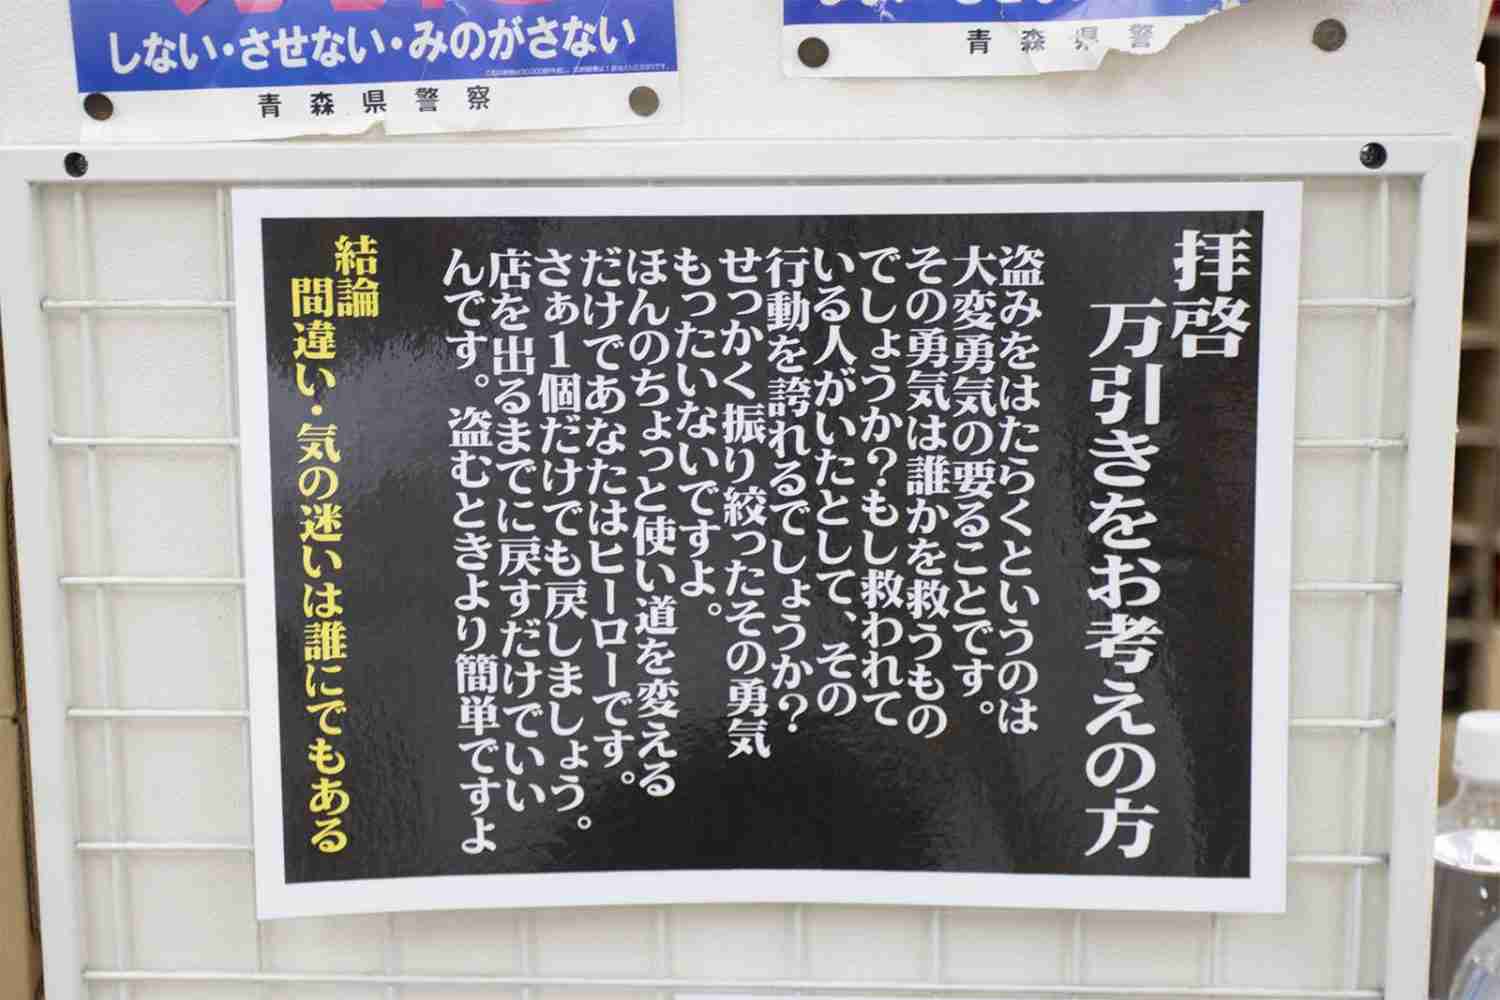 しない・させない・みのがさない
青森県警察
青森県警
拝啓
万引きをお考えの方
盗みをはたらくというのは
大変勇気の要ることです。
その勇気は誰かを救うもの
でしょうか？もし救われて
いる人がいたとして、その
行動を誇れるでしょうか？
せっかく振り絞ったその勇気
もったいないですよ。
ほんのちょっと使い道を変える
だけであなたはヒーローです。
さぁ１個だけでも戻しましょう。
店を出るまでに戻すだけでいい
んです。盗むときより簡単ですよ
結論
間違い・気の迷いは誰にでもある